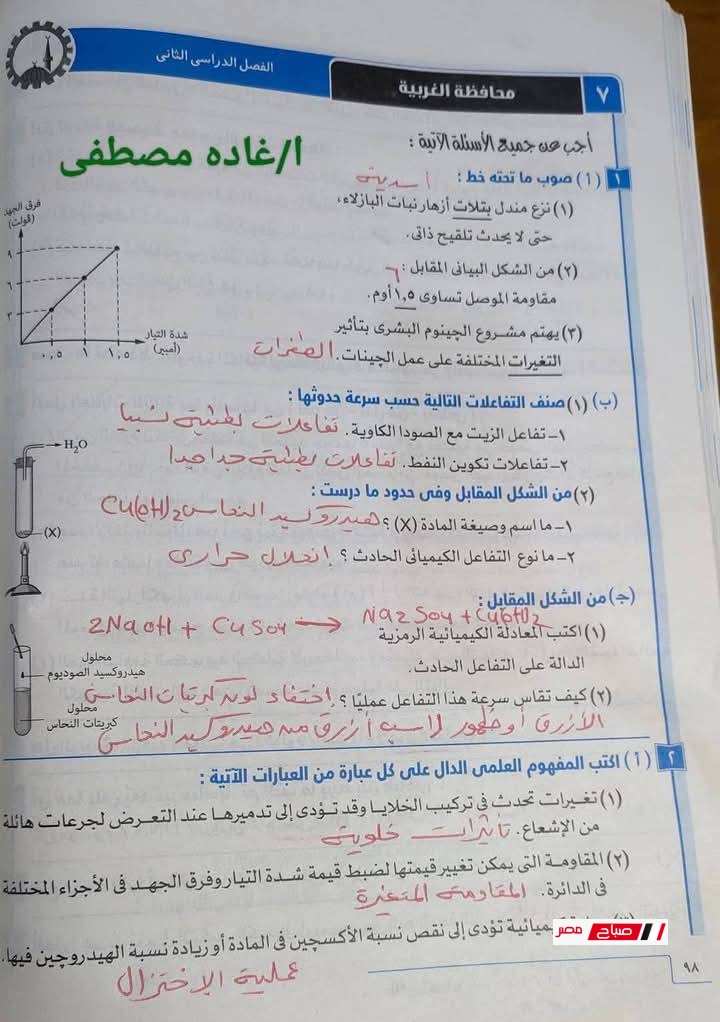 الفصل الدراسى الثانى
محافظة الغربية
٧
أجب عن جميع الأسئلة الآتية :
ا/غاده مصطفى
١ (أ) صوب ما تحته خط : أسدية
(١) نزع مندل بتلات أزهار نبات البازلاء،
حتى لا يحدث تلقيح ذاتى.
(٢) من الشكل البيانى المقابل : ٦
مقاومة الموصل تساوى ١,٥ أوم.
(٣) يهتم مشروع الچينوم البشرى بتأثير
التغيرات المختلفة على عمل الجينات. الطفرات
فرق الجهد
(ڤولت)
٩
٦
٣
٠,٥ ١ ١,٥
شدة التيار
(أمبير)
(ب) (١) صنف التفاعلات التالية حسب سرعة حدوثها :
١- تفاعل الزيت مع الصودا الكاوية. تفاعلات بطيئة نسبيا
٢- تفاعلات تكوين النفط. تفاعلات بطيئة جدا جدا
(٢) من الشكل المقابل وفى حدود ما درست :
١- ما اسم وصيغة المادة (X) ؟ هيدروكسيد النحاس Cu(OH)2
٢- ما نوع التفاعل الكيميائى الحادث ؟ إنحلال حرارى
H₂O
(X)
(جـ) من الشكل المقابل :
2NaOH + CuSO4 → Na2SO4 + Cu(OH)2
(١) اكتب المعادلة الكيميائية الرمزية
الدالة على التفاعل الحادث.
(٢) كيف تقاس سرعة هذا التفاعل عمليًا ؟ إختفاء لون كبريتات النحاس
الأزرق أو ظهور راسب أزرق من هيدروكسيد النحاس
محلول
هيدروكسيد الصوديوم
محلول
كبريتات النحاس
٢ (أ) اكتب المفهوم العلمى الدال على كل عبارة من العبارات الآتية :
(١) تغيرات تحدث فى تركيب الخلايا وقد تؤدى إلى تدميرها عند التعرض لجرعات هائلة
من الإشعاع. تأثيرات خلوية
(٢) المقاومة التى يمكن تغيير قيمتها لضبط قيمة شدة التيار وفرق الجهد فى الأجزاء المختلفة
فى الدائرة. المقاومة المتغيرة
كيميائية تؤدى إلى نقص نسبة الأكسچين فى المادة أو زيادة نسبة الهيدروچين فيها.
عملية الإختزال
صباح مصر
٩٨